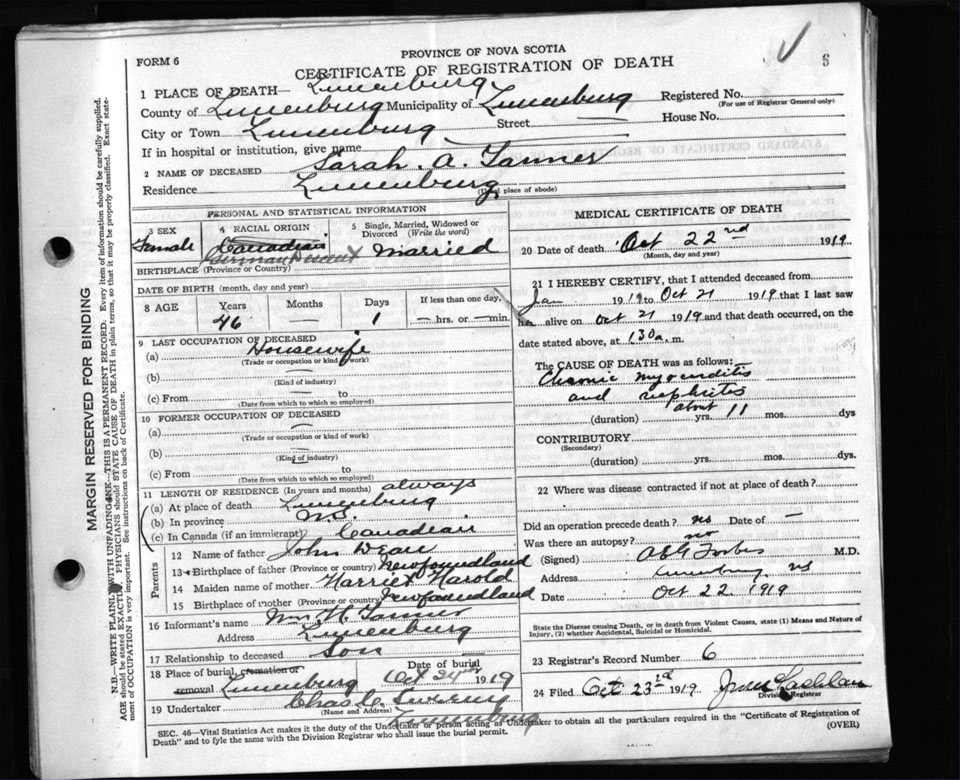 FORM 6
PROVINCE OF NOVA SCOTIA
6
CERTIFICATE OF REGISTRATION OF DEATH
1 PLACE OF DEATH— Lunenburg
County of Lunenburg Municipality of Lunenburg Registered No.
(For use of Registrar General only)
City or Town Lunenburg Street — House No.
If in hospital or institution, give name
2 NAME OF DECEASED Sarah. A. Tanner
Residence Lunenburg (Usual place of abode)
MARGIN RESERVED FOR BINDING
N.B.—WRITE PLAINLY WITH UNFADING INK—THIS IS A PERMANENT RECORD. Every item of information should be carefully supplied.
AGE should be stated EXACTLY. PHYSICIANS should STATE CAUSE OF DEATH in plain terms, so that it may be properly classified. Exact state-
ment of OCCUPATION is very important. See instructions on back of Certificate.
PERSONAL AND STATISTICAL INFORMATION
3 SEX 4 RACIAL ORIGIN 5 Single, Married, Widowed or
Divorced (Write the word)
Female Canadian Married
German Descent
BIRTHPLACE (Province or Country)
DATE OF BIRTH (month, day and year)
8 AGE Years Months Days If less than one day,
46 — 1 — hrs. or — min.
9 LAST OCCUPATION OF DECEASED
(a) Housewife
(Trade or occupation or kind of work)
(b)
(Kind of industry)
(c) From to
(Date from which to which so employed)
10 FORMER OCCUPATION OF DECEASED
(a)
(Trade or occupation or kind of work)
(b)
(Kind of industry)
(c) From to
(Date from which to which so employed)
11 LENGTH OF RESIDENCE (In years and months) always
(a) At place of death Lunenburg
(b) In province N.S.
(c) In Canada (if an immigrant) Canadian
Parents
12 Name of father John
13 Birthplace of father (Province or country) Newfoundland
14 Maiden name of mother Harriet Harold
15 Birthplace of mother (Province or country) Newfoundland
16 Informant's name Wm H. Tanner
Address Lunenburg
17 Relationship to deceased Son
18 Place of burial, cremation or Date of burial
removal Lunenburg Oct 24th 1919
19 Undertaker Chas
(Name and Address) Lunenburg
MEDICAL CERTIFICATE OF DEATH
20 Date of death Oct 22nd 1919
(Month, day and year)
21 I HEREBY CERTIFY, that I attended deceased from
Jan 1919 to Oct 21 1919 that I last saw
her alive on Oct 21 1919 and that death occurred, on the
date stated above, at 1 30 a. m.
The CAUSE OF DEATH was as follows:
Chronic myocarditis
and nephritis
about 11
(duration) yrs. mos. dys
CONTRIBUTORY
(Secondary)
(duration) yrs. mos. dys.
22 Where was disease contracted if not at place of death?
Did an operation precede death? no Date of —
Was there an autopsy? no
(Signed) Forbes M.D.
Address Lunenburg NS
Date Oct 22 1919
State the Disease causing Death, or in death from Violent Causes, state (1) Means and Nature of
Injury, (2) whether Accidental, Suicidal or Homicidal.
23 Registrar's Record Number 6
24 Filed Oct 23rd 1919
Division Registrar
SEC. 46—Vital Statistics Act makes it the duty of the Undertaker or person acting as Undertaker to obtain all the particulars required in the "Certificate of Registration of
Death" and to fyle the same with the Division Registrar who shall issue the burial permit.
(OVER)